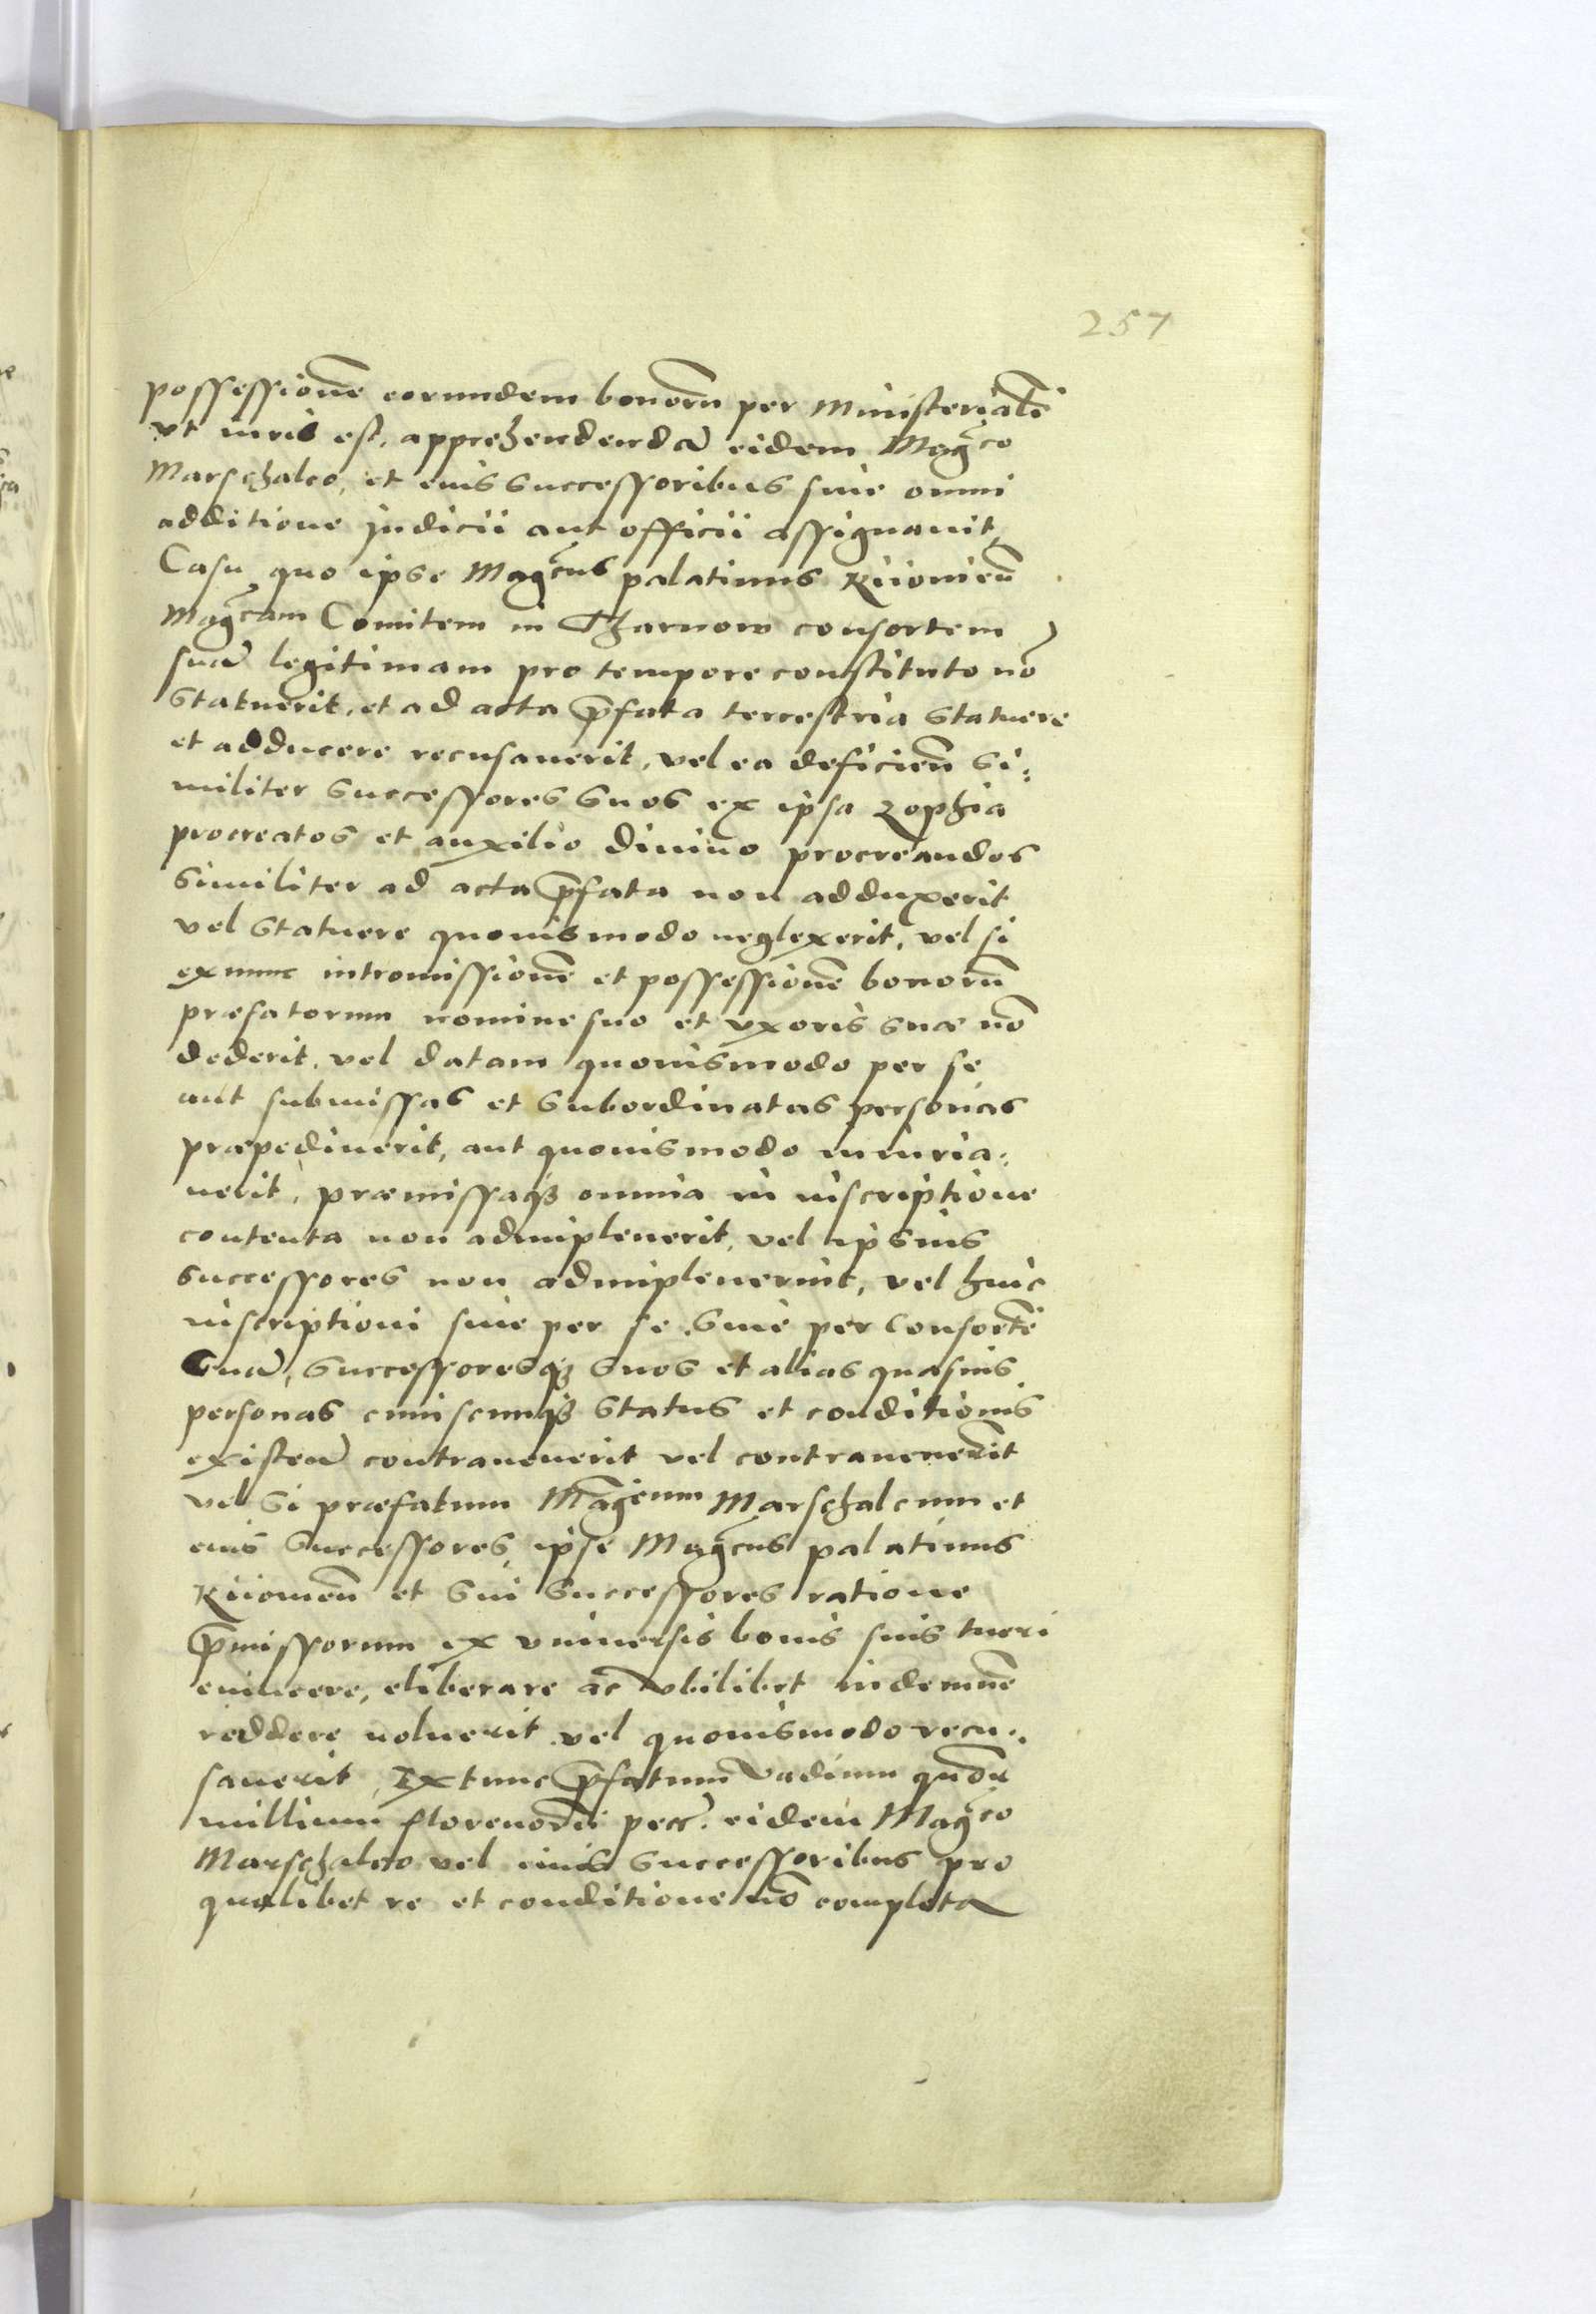 257
possessionē eorundem bonorū per Ministerialē
vt iuris est, apprehendendā eidem Magco
Marschalco, et eius successoribus sine omni
additione Judicii aut officii assignauit,
Casu quo ipse Magcus palatinus Kiiouieñ
Magcam Comitem in Tharnow consortem
suā legitimam pro tempore constituto nō
statuerit, et ad acta p̄fata terrestria statuere
et adducere recusauerit, vel ea deficieñ si:
militer successores suos ex ipsa Zophia
procreatos et auxilio diuino procreandos
similiter ad acta p̄fata non adduxerit
vel statuere quouismodo neglexerit, vel si
exnunc intromissionē et possessionē bonorū
præfatorum nomine suo et vxoris suæ nō
dederit, vel datam quouismodo per se
aut submissas et subordinatas personas
præpediuerit, aut quouismodo iniuria:
uerit, præmissaqȝ omnia in inscriptione
contenta non adimpleuerit, vel ipsius
successores non adimpleuerint, vel huic
inscriptioni siue per se siue per Consortē
suā, successoresqȝ suos et alias quasuis
personas cuiuscunqȝ status et conditionis
existeñ contrauenerit vel contrauenerīt
vel si præfatum Magcum Marschalcum et
eius successores, ipse Magcus palatinus
Kiiouieñ et sui successores ratione
p̄missorum ex vniuersis bonis suis tueri
euincere, eliberare ac vbilibet indemnē
reddere noluerit vel quouismodo recu:
sauerit, Extunc p̄fatum vadium
millium florenorū pecc. eidem Magco
Marschalco vel eius successoribus pro
qualibet re et conditione nō completa